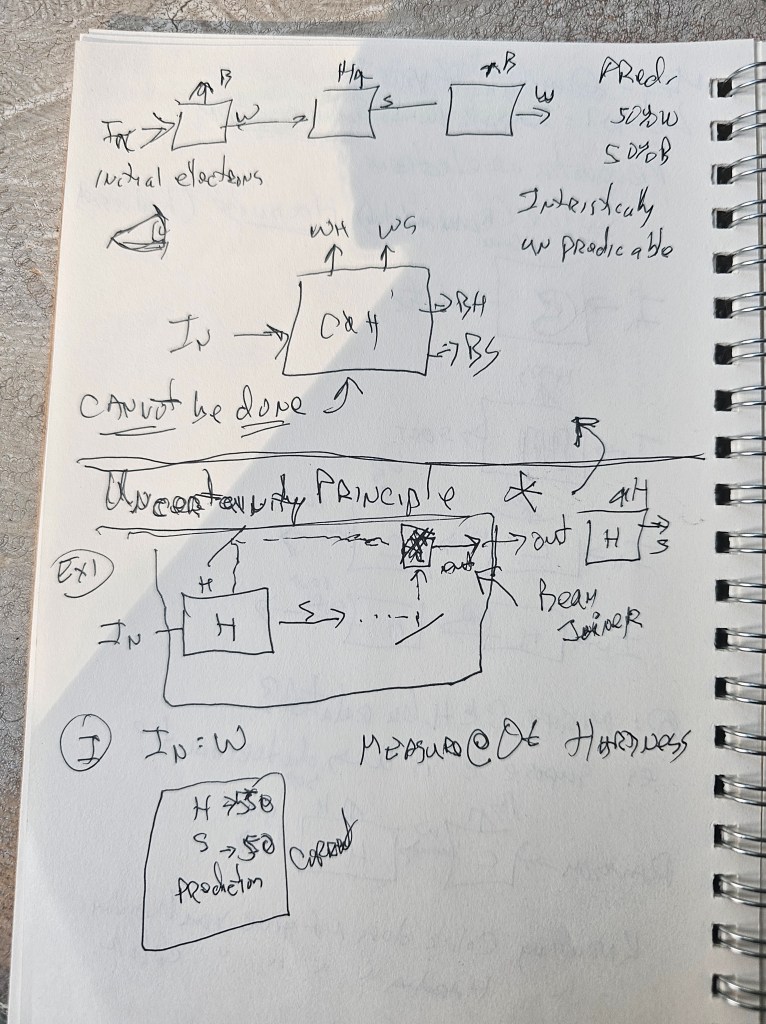 B
H
B
PRed.
W
S
W
50% W
50% B
Initial electrons
Intristically
un predicable
WH WS
IN
C&H
BH
BS
CANNOT be DONE
Uncertunity PRINCIPle
H
Ex1
H
H
out
out
H
S
IN
S
BEAM
JoineR
I IN: W MEASURD @ Ot HARDNESS
H → 50
S → 50
PRediction
CORRect